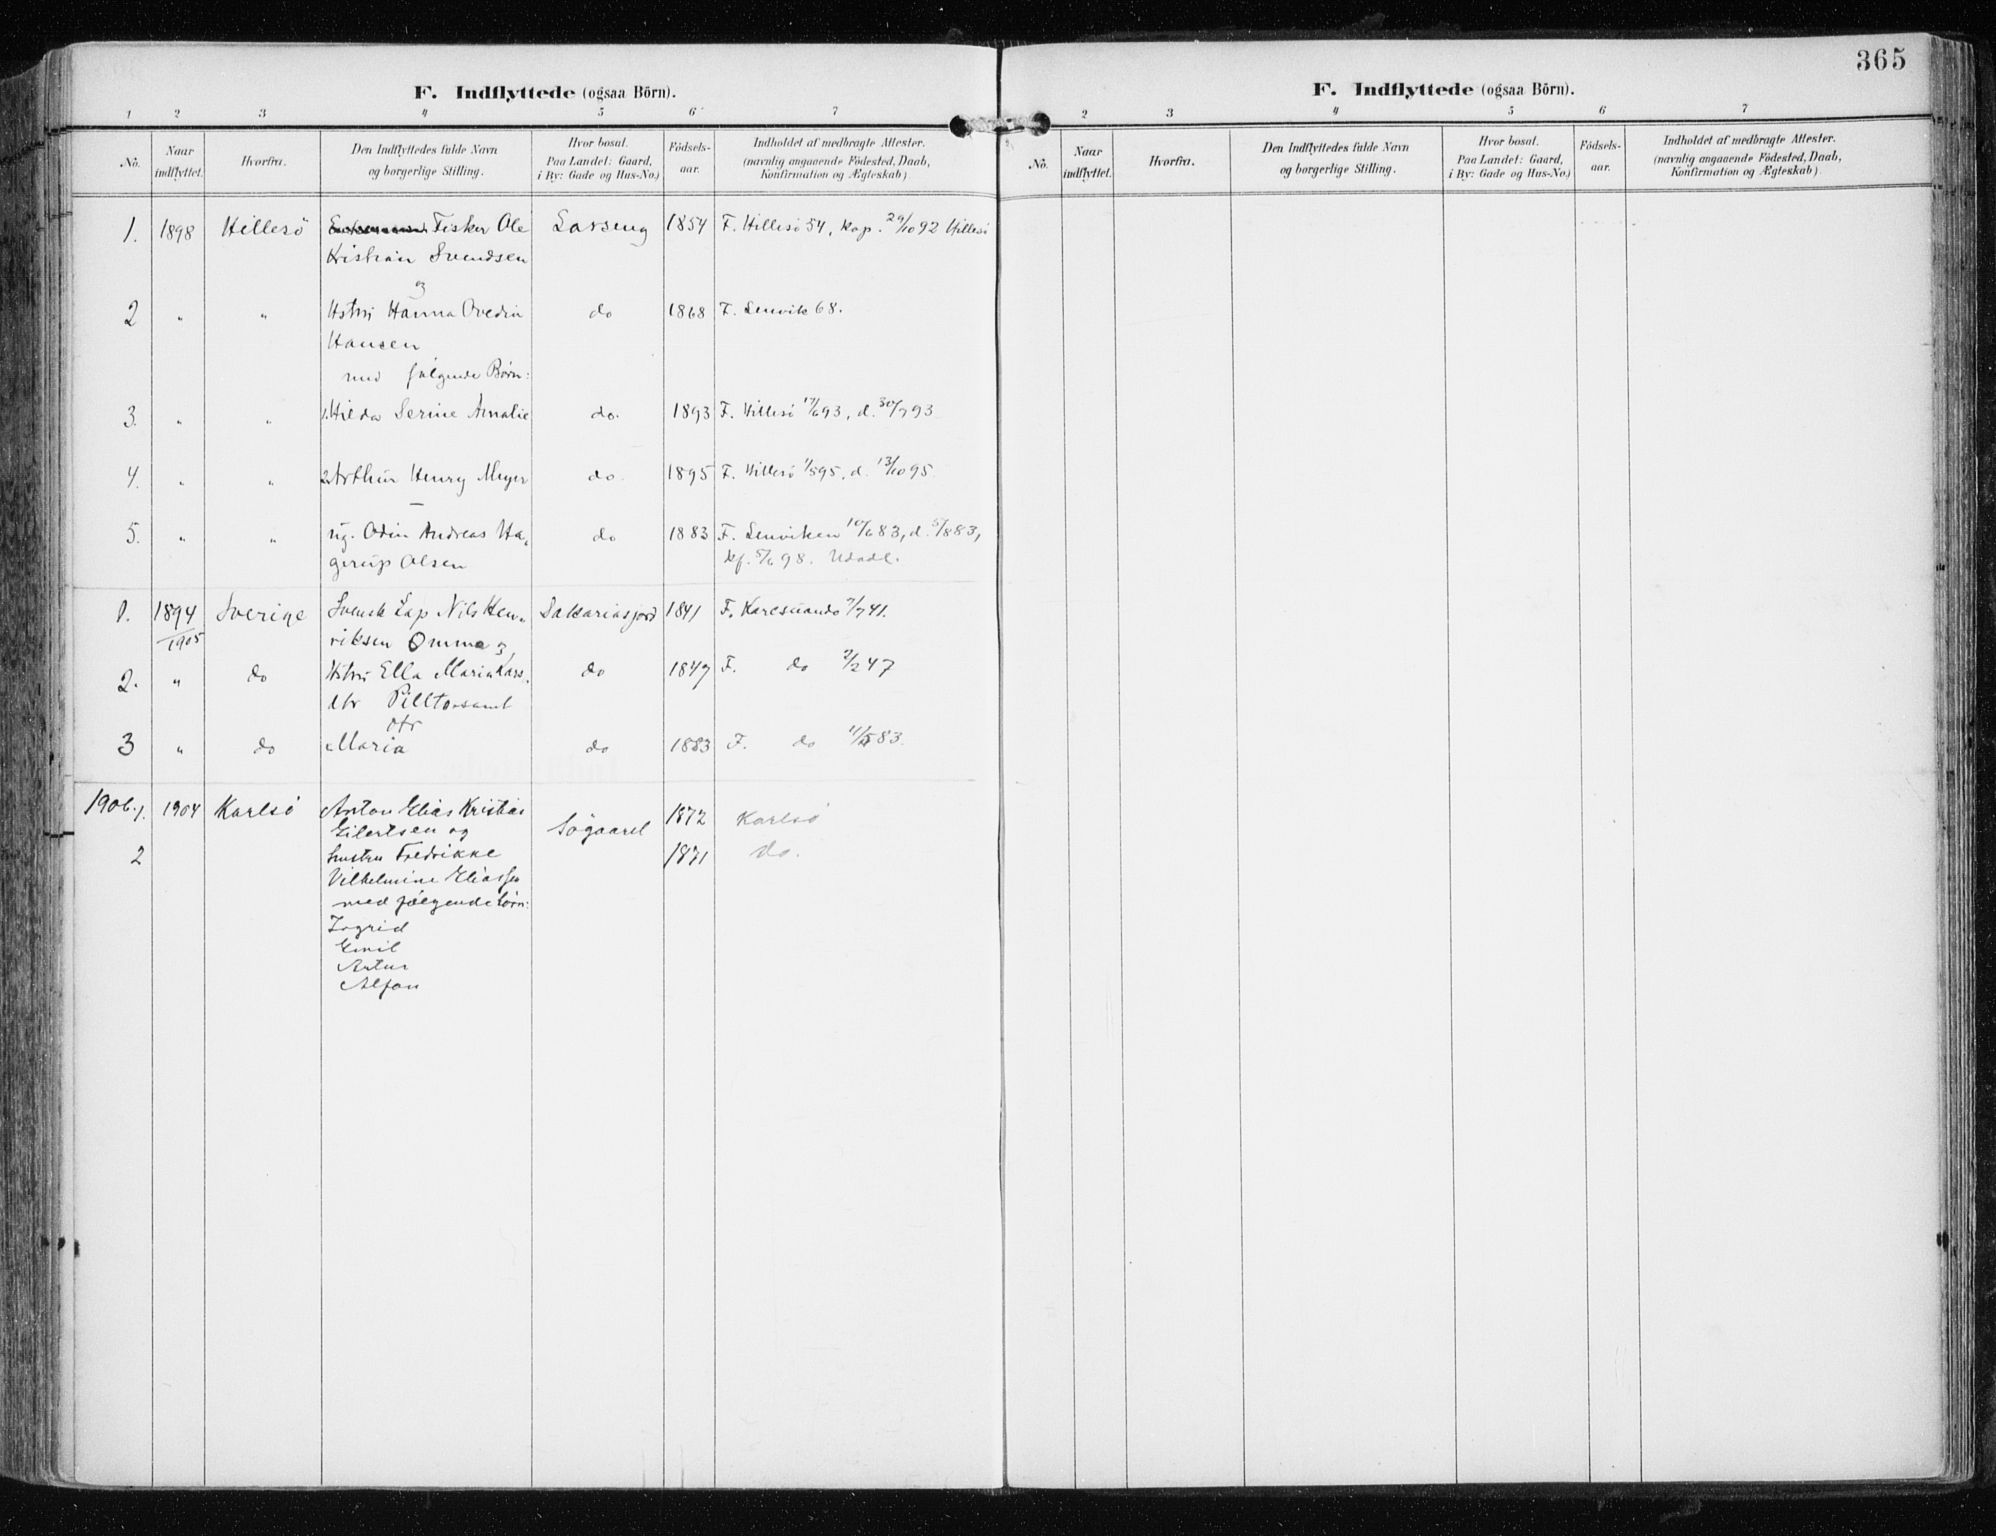 365
F. Indflyttede (ogsaa Börn).
1 2 3 4 5 6 7
No. Naar indflyttet. Hvorfra. Den Indflyttedes fulde Navn og borgerlige Stilling. Hvor bosat. Paa Landet: Gaard, i By: Gade og Hus-No.) Födsels-aar. Indholdet af medbragte Attester. (navnlig angaaende Födested, Daab, Konfirmation og Ægteskab)
1. 1898 Hillesö Fisker Ole Larseng 1854 F. Hillesö 54, kop. 29/10 92 Hillesö
Kristian Svendsen
og
2 " " Hstru Hanna Ovedia do 1868 F. Lenvik 68.
Hansen
med følgende Børn:
3. " " 1. Hilda Serine Amalie do. 1893 F. Hillesö 17/6 93, d. 30/7 93
4. " " 2. Arthur Henry Meyer do. 1895 F. Hillesö 1/5 95, d. 13/10 95.
5. " " ug. Odin Andreas Ha- do 1883 F. Lenviken 10/6 83, d. 5/8 83,
gerup Olsen kf. 5/6 98. Udadl.
1. 1894 Sverige Svensk Lap Nils Hen- Sakariasjord 1841 F. Karesuando 7/7 41.
1905 riksen Omma og
2. " do Hstru Ella Maria Lars- do 1847 F. do 2/2 47
dtr Pilltosamt
dtr
3 " do Maria do 1883 F. do 11/5 83.
1906. 1. 1904 Karlsö Anton Elias Kristian Søgaard 1872 Karlsö
Eilertsen og
2 hustru Fredrikke 1871 do.
Vilhelmine Eliassen
med følgende børn:
Ingrid
Emil
Artur
Alfon
F. Indflyttede (ogsaa Börn).
2 3 4 5 6 7
No. Naar indflyttet. Hvorfra. Den Indflyttedes fulde Navn og borgerlige Stilling. Hvor bosat. Paa Landet: Gaard, i By: Gade og Hus-No.) Födsels-aar. Indholdet af medbragte Attester. (navnlig angaaende Födested, Daab, Konfirmation og Ægteskab)